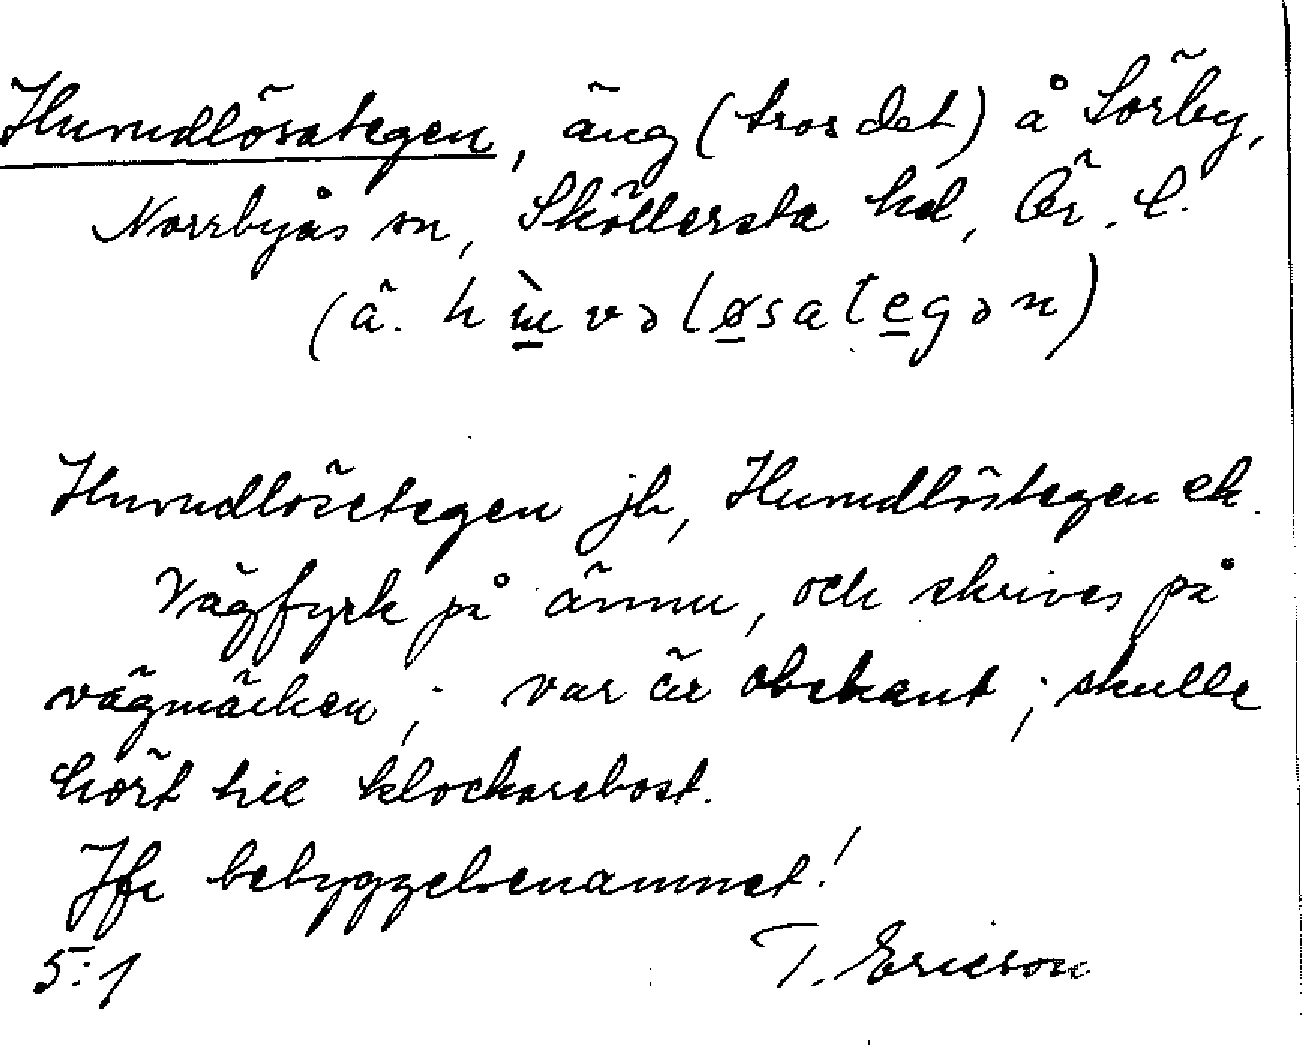 Huvudlösategen, äng (tror det) å Sörby,
Norrbyås sn, Sköllersta hd, Ör. l.
(ä. hɯ̀vəløsategən)
Huvudlösetegen jb, Huvudlöstegen ek.
Vägfyrk på ännu, och skrives på
vägmärken; var är obekant; skulle
hört till klockarebost.
Jfr bebyggelsenamnet!
5:1 T. Ericson